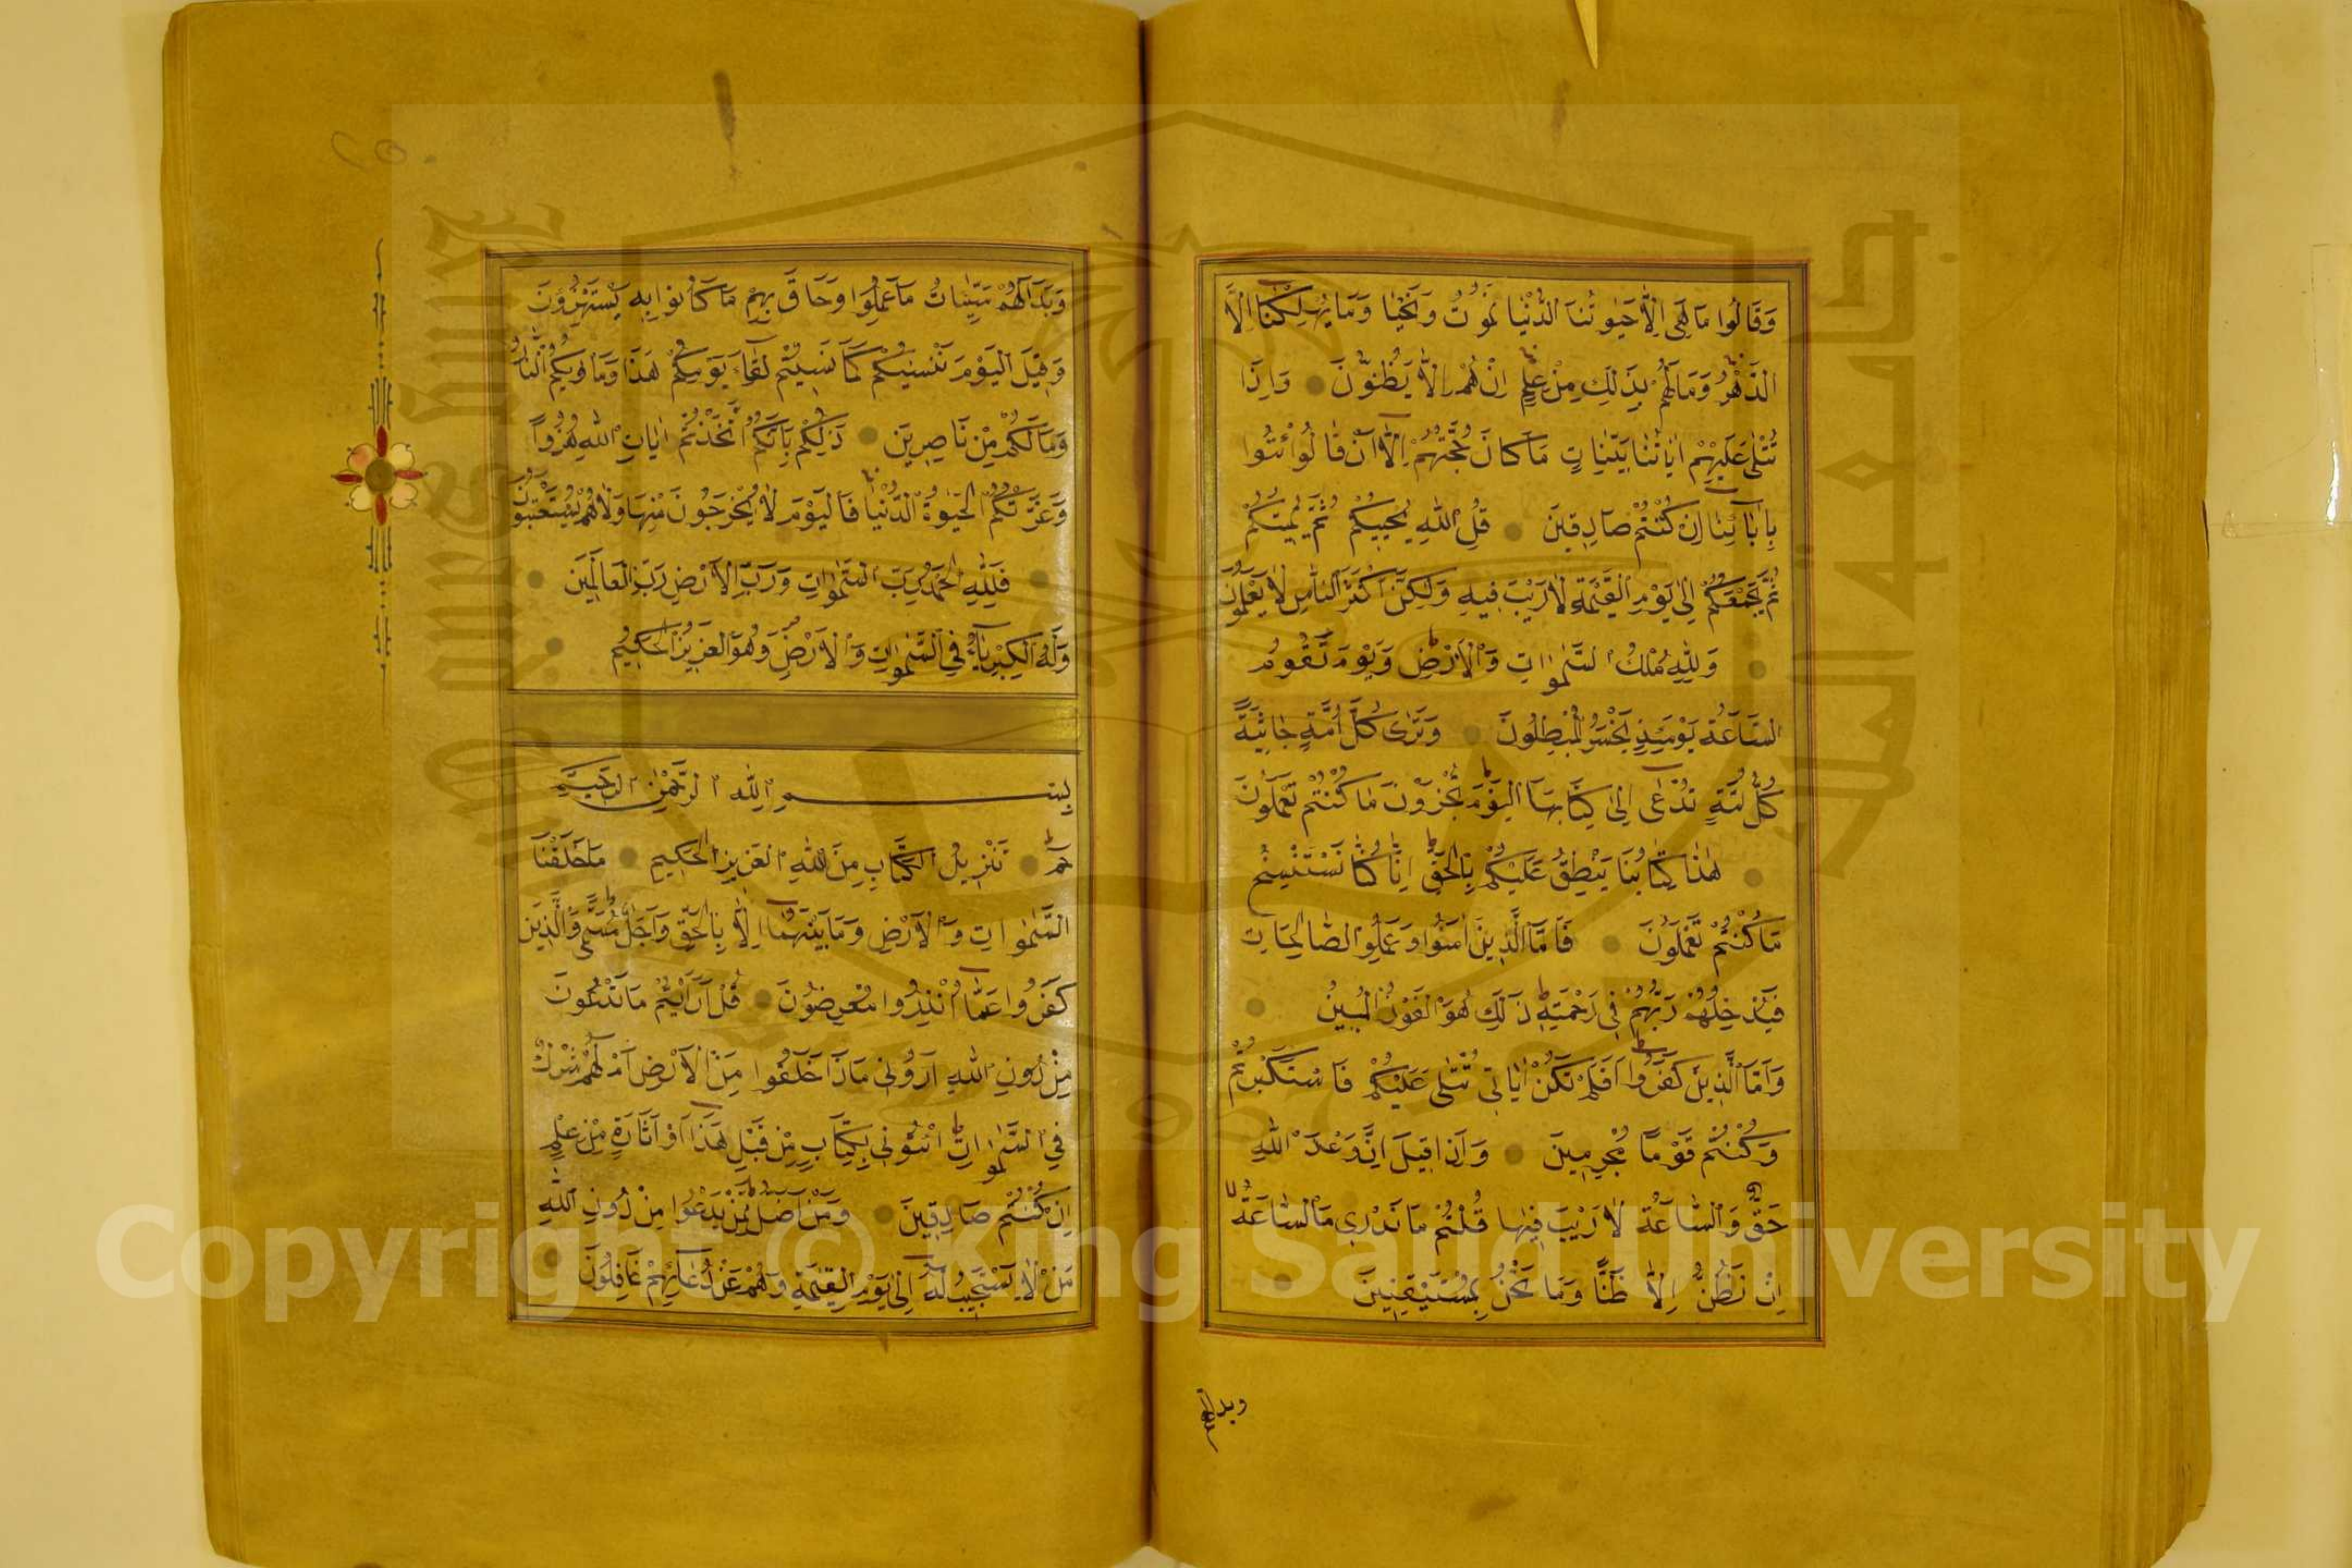 وَقَالُوا مَا هِيَ اِلَّا حَيٰوتُنَا الدُّنْيَا نَمُوتُ وَنَحْيَا وَمَا يُهْلِكُنَا اِلَّا
الدَّهْرُ وَمَا لَهُمْ بِذٰلِكَ مِنْ عِلْمٍ اِنْ هُمْ اِلَّا يَظُنُّونَ وَاِذَا
تُتْلٰى عَلَيْهِمْ اٰيَاتُنَا بَيِّنَاتٍ مَا كَانَ حُجَّتَهُمْ اِلَّا اَنْ قَالُوا ائْتُوا
بِاٰبَائِنَا اِنْ كُنْتُمْ صَادِقِينَ قُلِ اللّٰهُ يُحْيِيكُمْ ثُمَّ يُمِيتُكُمْ
ثُمَّ يَجْمَعُكُمْ اِلٰى يَوْمِ الْقِيٰمَةِ لَا رَيْبَ فِيهِ وَلٰكِنَّ اَكْثَرَ النَّاسِ لَا يَعْلَمُونَ
وَلِلّٰهِ مُلْكُ السَّمٰوَاتِ وَالْاَرْضِ وَيَوْمَ تَقُومُ
السَّاعَةُ يَوْمَئِذٍ يَخْسَرُ الْمُبْطِلُونَ وَتَرٰى كُلَّ اُمَّةٍ جَاثِيَةً
كُلُّ اُمَّةٍ تُدْعٰى اِلٰى كِتَابِهَا اَلْيَوْمَ تُجْزَوْنَ مَا كُنْتُمْ تَعْمَلُونَ
هٰذَا كِتَابُنَا يَنْطِقُ عَلَيْكُمْ بِالْحَقِّ اِنَّا كُنَّا نَسْتَنْسِخُ
مَا كُنْتُمْ تَعْمَلُونَ فَاَمَّا الَّذِينَ اٰمَنُوا وَعَمِلُوا الصَّالِحَاتِ
فَيُدْخِلُهُمْ رَبُّهُمْ فِي رَحْمَتِهِ ذٰلِكَ هُوَ الْفَوْزُ الْمُبِينُ
وَاَمَّا الَّذِينَ كَفَرُوا اَفَلَمْ تَكُنْ اٰيَاتِي تُتْلٰى عَلَيْكُمْ فَاسْتَكْبَرْتُمْ
وَكُنْتُمْ قَوْمًا مُجْرِمِينَ وَاِذَا قِيلَ اِنَّ وَعْدَ اللّٰهِ
حَقٌّ وَالسَّاعَةُ لَا رَيْبَ فِيهَا قُلْتُمْ مَا نَدْرِي مَا السَّاعَةُ
اِنْ نَظُنُّ اِلَّا ظَنًّا وَمَا نَحْنُ بِمُسْتَيْقِنِينَ
وبدا لهم
٢٥٠
وَبَدَا لَهُمْ سَيِّئَاتُ مَا عَمِلُوا وَحَاقَ بِهِمْ مَا كَانُوا بِهِ يَسْتَهْزِؤُنَ
وَقِيلَ الْيَوْمَ نَنْسٰيكُمْ كَمَا نَسِيتُمْ لِقَاءَ يَوْمِكُمْ هٰذَا وَمَاْوٰيكُمُ النَّارُ
وَمَا لَكُمْ مِنْ نَاصِرِينَ ذٰلِكُمْ بِاَنَّكُمُ اتَّخَذْتُمْ اٰيَاتِ اللّٰهِ هُزُوًا
وَغَرَّتْكُمُ الْحَيٰوةُ الدُّنْيَا فَالْيَوْمَ لَا يُخْرَجُونَ مِنْهَا وَلَا هُمْ يُسْتَعْتَبُونَ
فَلِلّٰهِ الْحَمْدُ رَبِّ السَّمٰوَاتِ وَرَبِّ الْاَرْضِ رَبِّ الْعَالَمِينَ
وَلَهُ الْكِبْرِيَاءُ فِي السَّمٰوَاتِ وَالْاَرْضِ وَهُوَ الْعَزِيزُ الْحَكِيمُ
بِسْمِ اللّٰهِ الرَّحْمٰنِ الرَّحِيمِ
حٰمٓ تَنْزِيلُ الْكِتَابِ مِنَ اللّٰهِ الْعَزِيزِ الْحَكِيمِ مَا خَلَقْنَا
السَّمٰوَاتِ وَالْاَرْضَ وَمَا بَيْنَهُمَا اِلَّا بِالْحَقِّ وَاَجَلٍ مُسَمًّى وَالَّذِينَ
كَفَرُوا عَمَّا اُنْذِرُوا مُعْرِضُونَ قُلْ اَرَاَيْتُمْ مَا تَدْعُونَ
مِنْ دُونِ اللّٰهِ اَرُونِي مَاذَا خَلَقُوا مِنَ الْاَرْضِ اَمْ لَهُمْ شِرْكٌ
فِي السَّمٰوَاتِ ائْتُونِي بِكِتَابٍ مِنْ قَبْلِ هٰذَا اَوْ اَثَارَةٍ مِنْ عِلْمٍ
اِنْ كُنْتُمْ صَادِقِينَ وَمَنْ اَضَلُّ مِمَّنْ يَدْعُوا مِنْ دُونِ اللّٰهِ
مَنْ لَا يَسْتَجِيبُ لَهُ اِلٰى يَوْمِ الْقِيٰمَةِ وَهُمْ عَنْ دُعَائِهِمْ غَافِلُونَ
Copyright © King Saud University